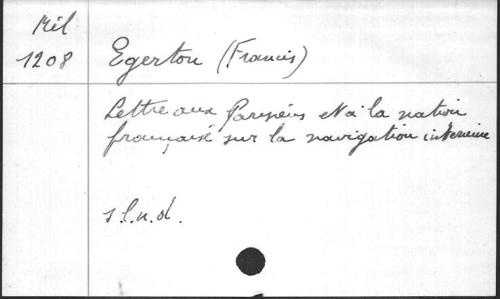 Mél
1208
Egerton (Francis)
Lettre aux Parisiens et à la nation
française sur la navigation intérieure
s.l.n.d.